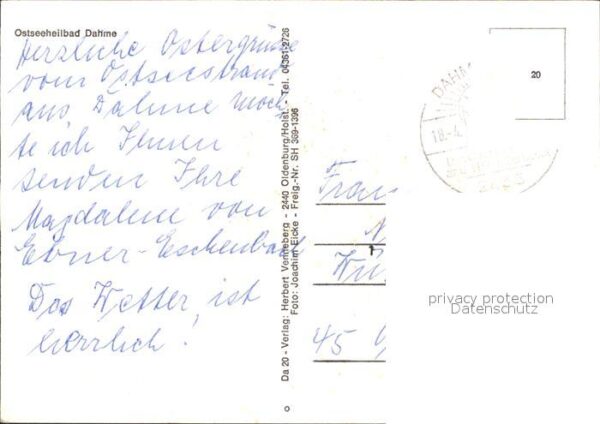 Ostseeheilbad Dahme
Herzliche Ostergrüße
vom Ostseestrand
aus Dahme möch
te ich Ihnen
senden Ihre
Magdalene von
Ebner-Eschenbach
Das Wetter ist
herrlich!
Da 20 - Verlag: Herbert Venneberg - 2440 Oldenburg/Holst. - Tel. 04361-2726
Foto: Joachim Eicke - Freig.-Nr. SH 369-1396
DAHM
18.-4.
20
Frau
45
privacy protection
Datenschutz